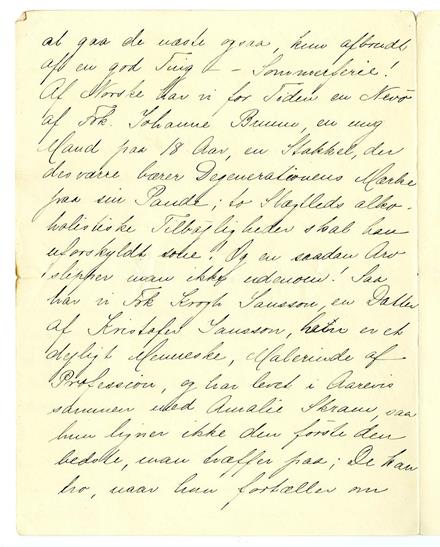 at gaa de næste ogsaa, kun afbrudt
af en god Ting — — Sommerferie!
Af Norske har vi for Tiden en Nevö
af Frk Johanne Bruun, en ung
Mand paa 18 Aar, en Stakkel, der
desværre bærer Degenerationens Mærke
paa sin Pande; to Slægtleds alko-
holistiske Tilbøjligheder skal han
uforskyldt sone! Og en saadan Arv
slipper man ikke udenom! Saa
har vi Frk Krogh Jansson, en Datter
af Kristofer Jansson, hun er et
dejligt Menneske, Malerinde af
Profession, og har levet i Aarevis
sammen med Amalie Skram, saa
hun ligner ikke den første den
bedste, man træffer paa; De kan
tro, naar hun fortæller om